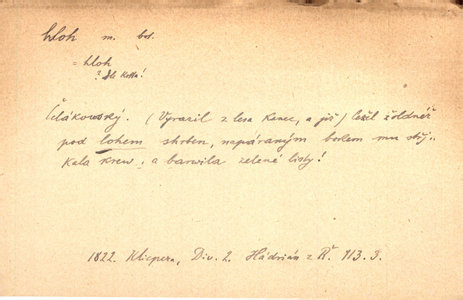 hloh m. bot.
= hloh
? dle Kotta!
Čelákowský. (Vyrazil z lesa kanec, a již) ležel žoldnéř
pod lohem skrben, napáraným bokem mu
kala krew, a barwila zelené listy!
1822. Klicpera, Div. 2. Hadrián z Ř. 113. 3.